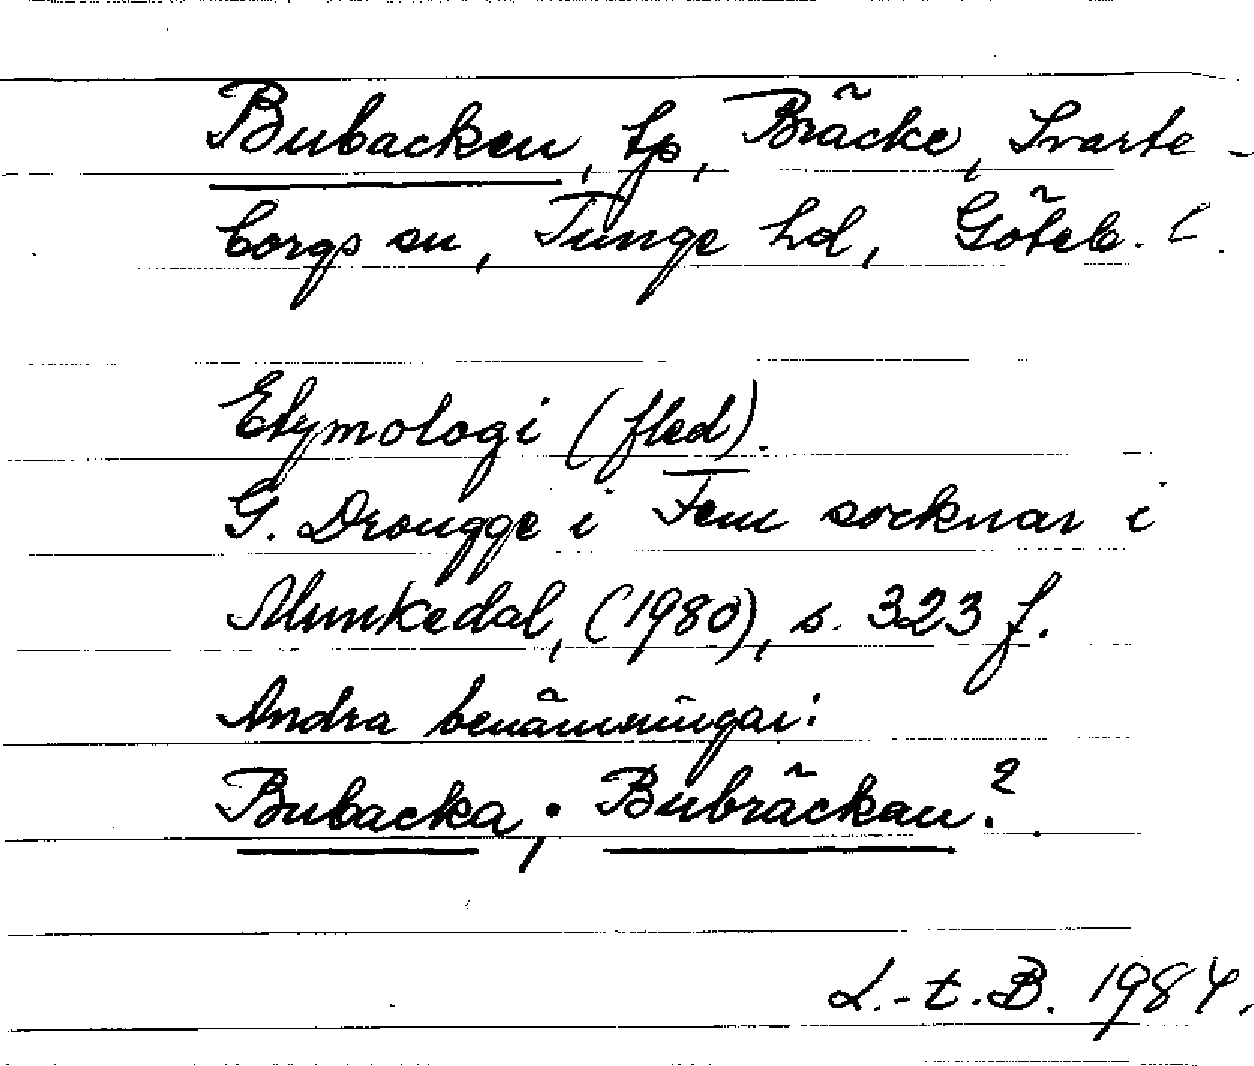 Bubacken, tp, Bräcke, Svarte-
borgs sn, Tunge hd, Göteb. l.
Etymologi (fled).
G. Drougge i Fem socknar i
Munkedal, (1980), s. 323 f.
Andra benämningar:
Bubacka; Bubräckan?.
L.-t.B. 1984.